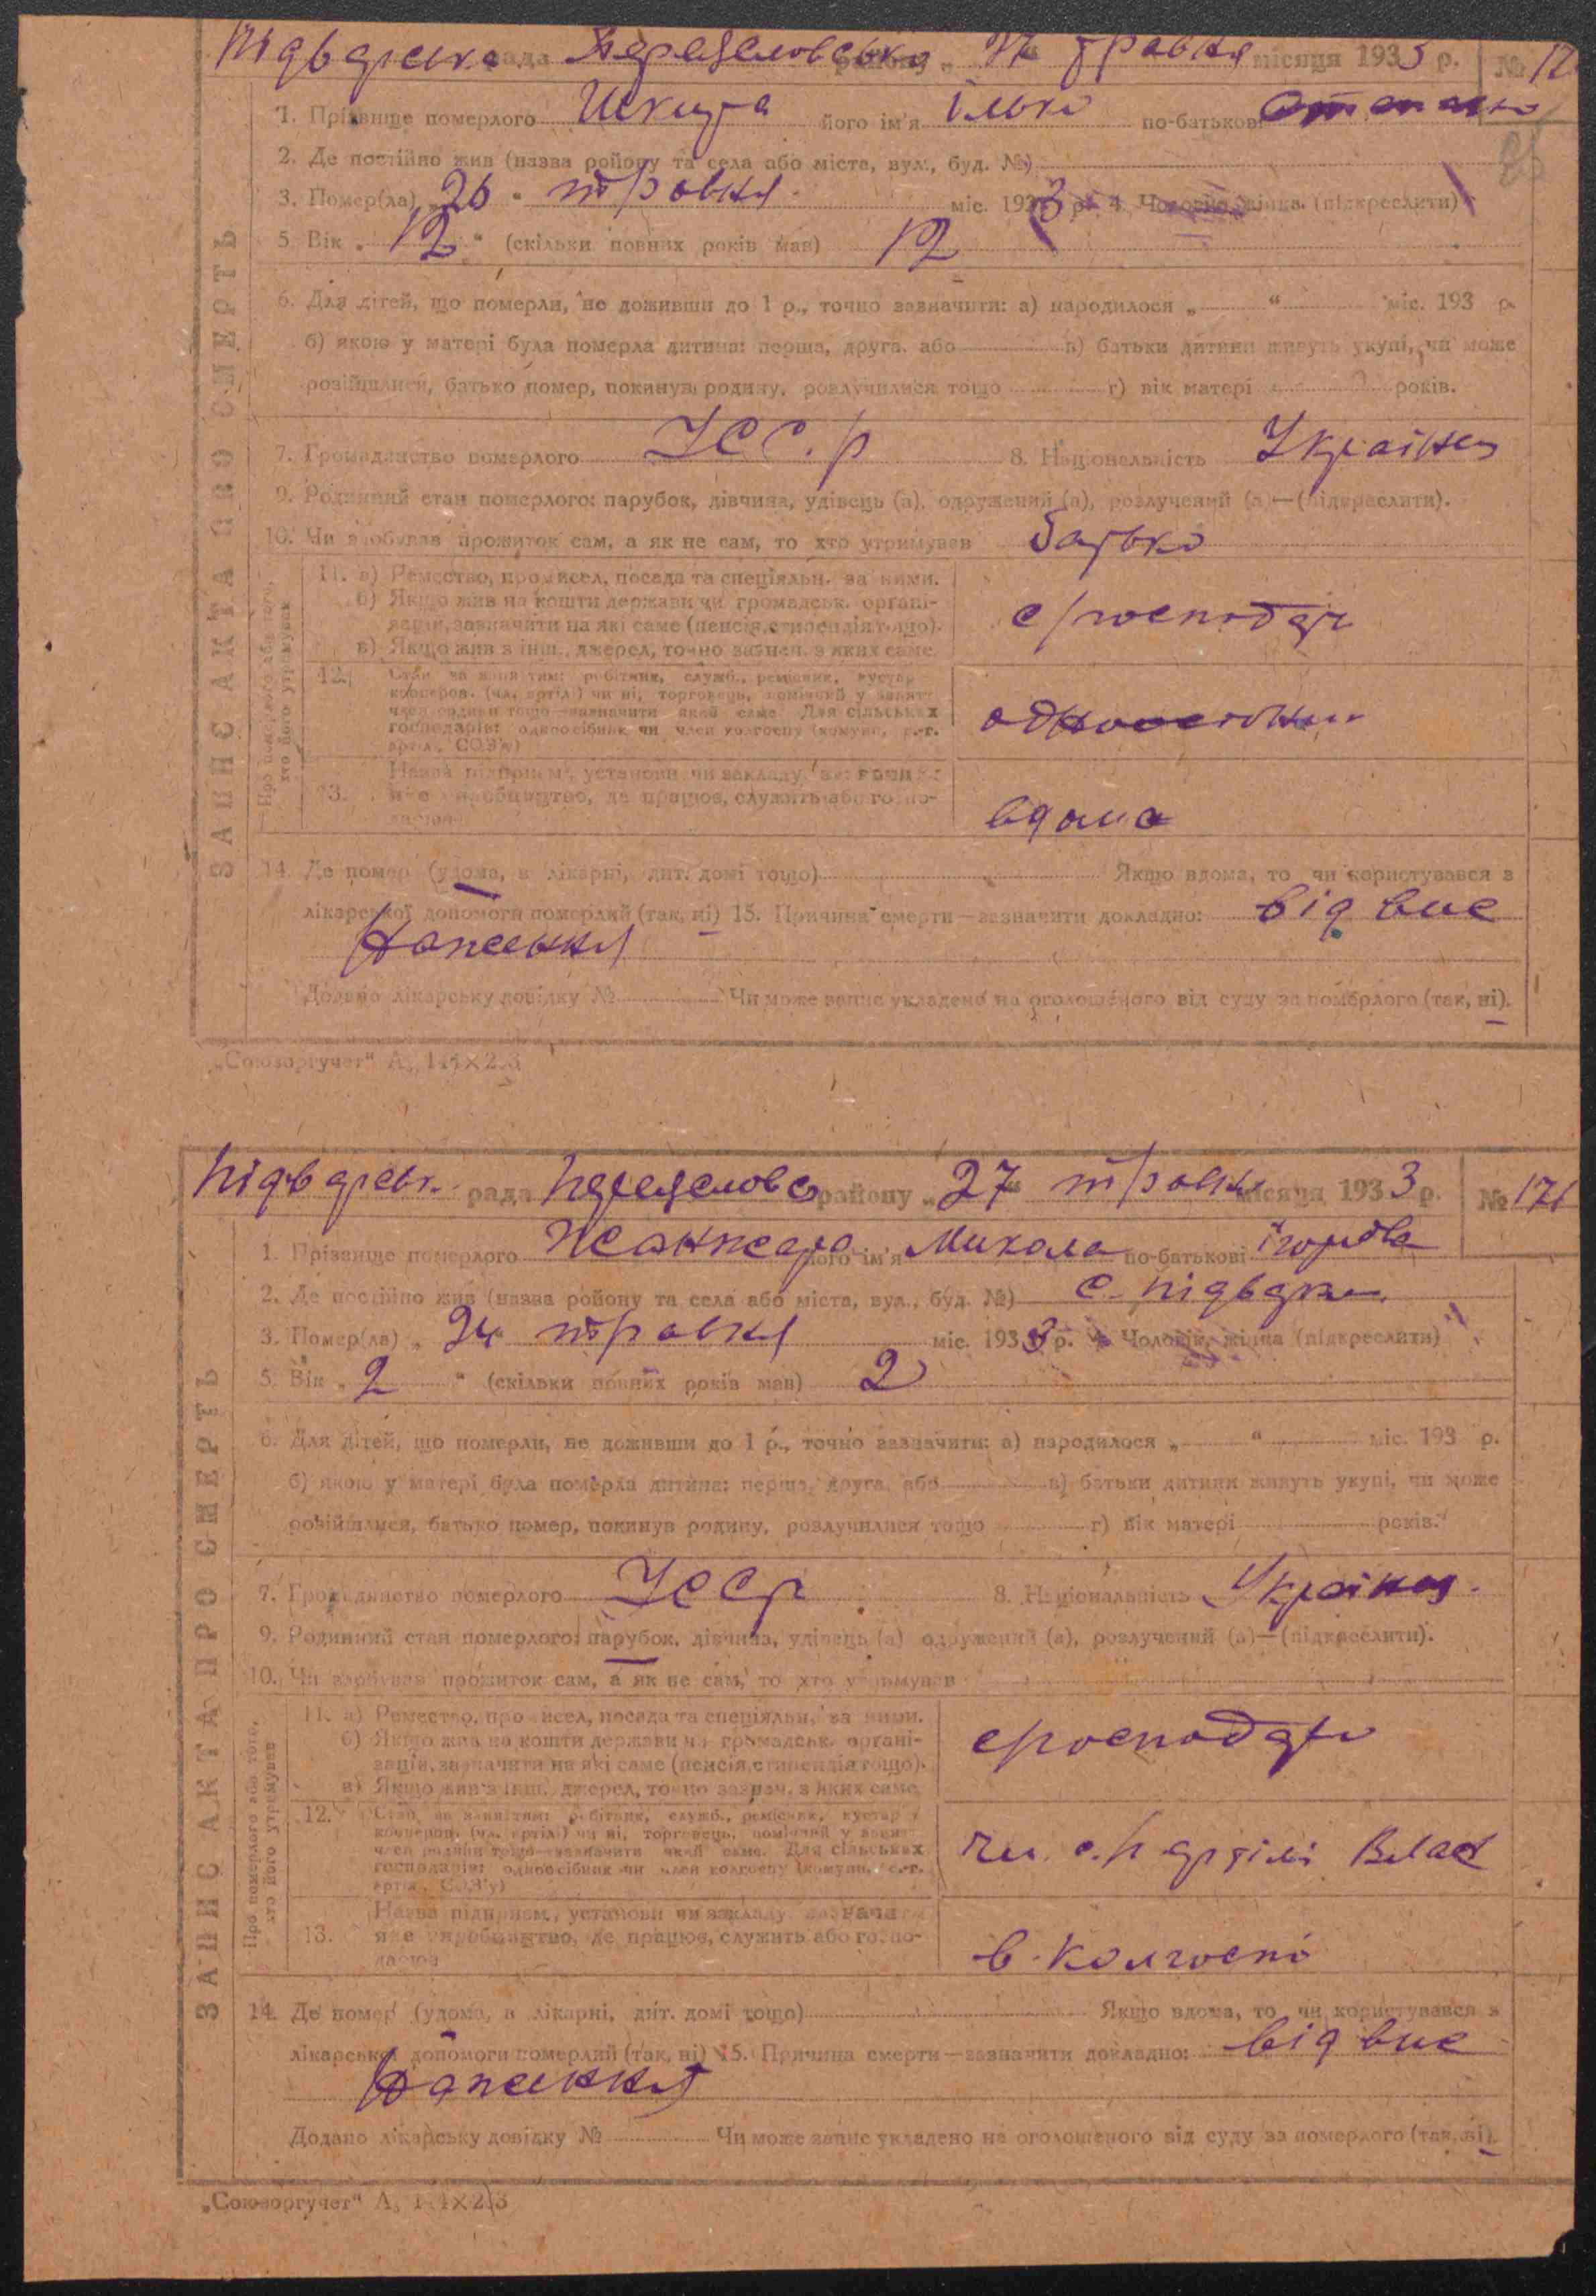 Підварська рада Переяславська району „27“ травня місяця 1933 р. № 17
1. Прізвище померлого Шкута його ім'я Ілько по-батькові
2. Де постійно жив (назва району та села або міста, вул., буд. №)
3. Помер(ла) „26“ травня міс. 1933 р. 4. Чоловік, жінка (підкреслити)
5. Вік „12“ (скільки повних років мав) 12
6. Для дітей, що померли, не доживши до 1 р., точно зазначити: а) народилося „ “ міс. 193 р.
б) якою у матері була померла дитина: перша, друга, або в) батьки дитини живуть укупі, чи може
розійшлися, батько помер, покинув родину, розлучилися тощо г) вік матері років.
7. Громадянство померлого УССР 8. Національність Українец
9. Родинний стан померлого: парубок, дівчина, удівець (а), одружений (а), розлучений (а)—(підкреслити).
10. Чи здобував прожиток сам, а як не сам, то хто утримував батько
ЗАПИС АКТА ПРО СМЕРТЬ
Про померлого або того, хто його утримував
11. а) Ремество, промисел, посада та спеціяльн. за ними.
б) Якщо жив на кошти держави чи громадськ. органі-
зацій, зазначити на які саме (пенсія, стипендія тощо).
в) Якщо жив з інш. джерел, точно зазнач. з яких саме.
с/господар
12. Стан за заняттям: робітник, служб., ремісник, кустар
кооперов. (чл. артілі) чи ні, торговець, помічний у занят.
член родини тощо—зазначити який саме. Для сільських
господарів: одноосібник чи член колгоспу (комуни, с.-г.
артіл., СОЗ'у)
13. Назва підприєм., установи чи закладу, зазначи
яке виробництво, де працює, служить або госпо-
дарює
вдома
14. Де помер (удома, в лікарні, дит. домі тощо) Якщо вдома, то чи користувався з
лікарської допомоги померлий (так, ні) 15. Причина смерти—зазначити докладно: від вис
наження
Додано лікарську довідку № Чи може запис укладено на оголошеного від суду за померлого (так, ні).
„Союзоргучет“
Підварськ. рада Переяславс району „27“ травня місяця 1933 р. № 171
1. Прізвище померлого Жанжара його ім'я Микола по-батькові
2. Де постійно жив (назва району та села або міста, вул., буд. №) с. Підварки
3. Помер(ла) „24“ травня міс. 1933 р. 4. Чоловік, жінка (підкреслити)
5. Вік „2“ (скільки повних років мав) 2
6. Для дітей, що померли, не доживши до 1 р., точно зазначити: а) народилося „ “ міс. 193 р.
б) якою у матері була померла дитина: перша, друга, або в) батьки дитини живуть укупі, чи може
розійшлися, батько помер, покинув родину, розлучилися тощо г) вік матері років.
7. Громадянство померлого УССР 8. Національність Українец
9. Родинний стан померлого: парубок, дівчина, удівець (а) одружений (а), розлучений (а)—(підкреслити).
10. Чи здобував прожиток сам, а як не сам, то хто утримував
ЗАПИС АКТА ПРО СМЕРТЬ
Про померлого або того, хто його утримував
11. а) Ремество, промисел, посада та спеціяльн. за ними.
б) Якщо жив на кошти держави чи громадськ. органі-
зацій, зазначити на які саме (пенсія, стипендія тощо).
в) Якщо жив з інш. джерел, точно зазнач. з яких саме
с/господар
12. Стан за заняттям: робітник, служб., ремісник, кустар
кооперов. (чл. артілі) чи ні, торговець, помічний у занят.
член родини тощо—зазначити який саме. Для сільських
господарів: одноосібник чи член колгоспу (комуни, с.-г.
артіл., СОЗ'у)
чл. с.г артілі
13. Назва підприєм., установи чи закладу, зазначи
яке виробництво, де працює, служить або госпо-
дарює
в колгоспі
14. Де помер (удома, в лікарні, дит. домі тощо) Якщо вдома, то чи користувався з
лікарської допомоги померлий (так, ні) 15. Причина смерти—зазначити докладно: від вис
наження
Додано лікарську довідку № Чи може запис укладено на оголошеного від суду за померлого (так, ні).
„Союзоргучет“